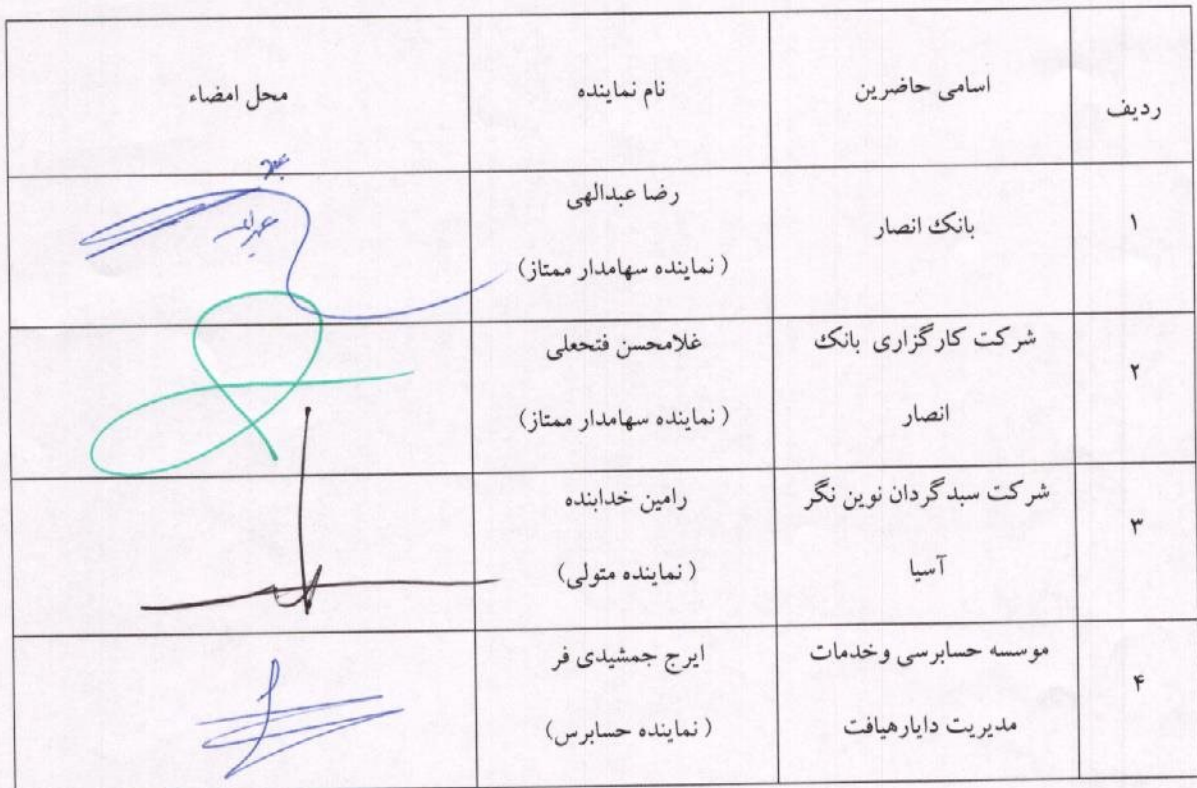 ردیف
اسامی حاضرین
نام نماینده
محل امضاء
۱
بانک انصار
رضا عبدالهی
( نماینده سهامدار ممتاز)
۲
شرکت کارگزاری بانک
انصار
غلامحسن فتحعلی
( نماینده سهامدار ممتاز)
۳
شرکت سبدگردان نوین نگر
آسیا
رامین خدابنده
( نماینده متولی)
۴
موسسه حسابرسی وخدمات
مدیریت دایارهیافت
ایرج جمشیدی فر
( نماینده حسابرس)